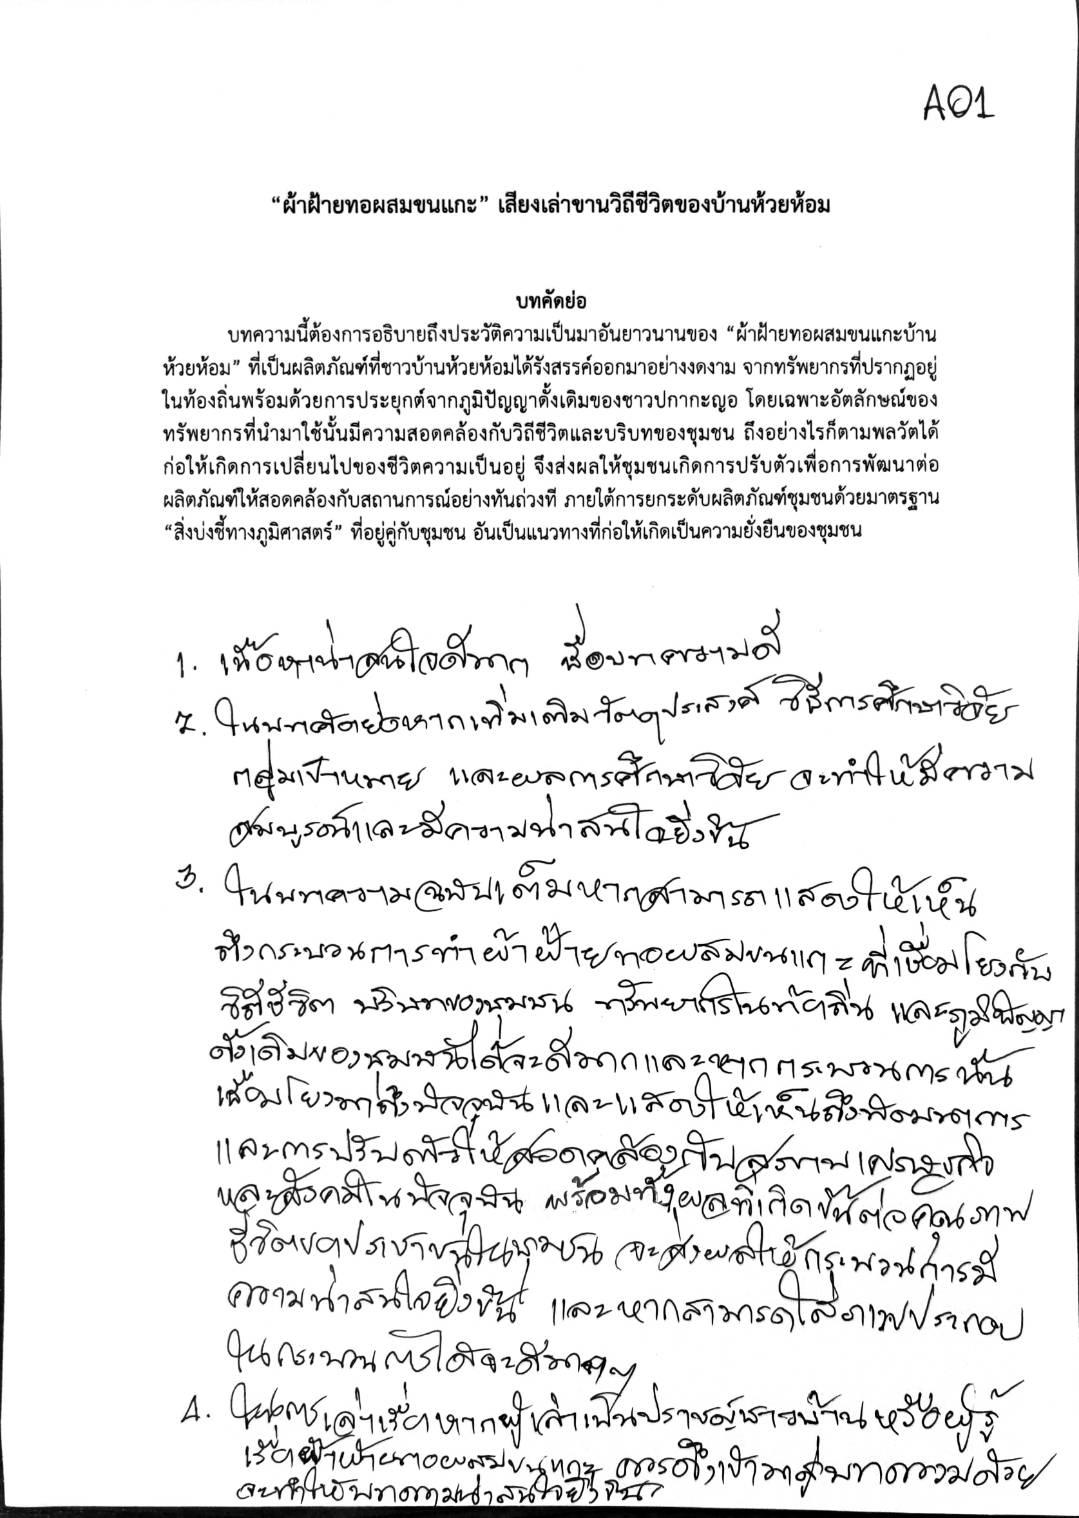 A01
“ผ้าฝ้ายทอผสมขนแกะ” เสียงเล่าขานวิถีชีวิตของบ้านห้วยห้อม
บทคัดย่อ
บทความนี้ต้องการอธิบายถึงประวัติความเป็นมาอันยาวนานของ “ผ้าฝ้ายทอผสมขนแกะบ้าน
ห้วยห้อม” ที่เป็นผลิตภัณฑ์ที่ชาวบ้านห้วยห้อมได้รังสรรค์ออกมาอย่างงดงาม จากทรัพยากรที่ปรากฏอยู่
ในท้องถิ่นพร้อมด้วยการประยุกต์จากภูมิปัญญาดั้งเดิมของชาวปกากะญอ โดยเฉพาะอัตลักษณ์ของ
ทรัพยากรที่นำมาใช้นั้นมีความสอดคล้องกับวิถีชีวิตและบริบทของชุมชน ถึงอย่างไรก็ตามพลวัตได้
ก่อให้เกิดการเปลี่ยนไปของชีวิตความเป็นอยู่ จึงส่งผลให้ชุมชนเกิดการปรับตัวเพื่อการพัฒนาต่อ
ผลิตภัณฑ์ให้สอดคล้องกับสถานการณ์อย่างทันถ่วงที ภายใต้การยกระดับผลิตภัณฑ์ชุมชนด้วยมาตรฐาน
“สิ่งบ่งชี้ทางภูมิศาสตร์” ที่อยู่คู่กับชุมชน อันเป็นแนวทางที่ก่อให้เกิดเป็นความยั่งยืนของชุมชน
1. เนื้อหาน่าสนใจดีมาก ชื่อบทความดี
2. ในบทคัดย่อหากเพิ่มเติมวัตถุประสงค์ วิธีการศึกษาวิจัย
กลุ่มเป้าหมาย และผลการศึกษาวิจัย จะทำให้มีความ
สมบูรณ์และมีความน่าสนใจยิ่งขึ้น
3. ในบทความฉบับเต็มหากสามารถแสดงให้เห็น
ถึงกระบวนการทำผ้าฝ้ายทอผสมขนแกะที่เชื่อมโยงกับ
วิถีชีวิต บริบทของชุมชน ทรัพยากรในท้องถิ่น และภูมิปัญญา
ดั้งเดิมของชุมชนได้จะดีมากและหากกระบวนการนั้น
เชื่อมโยงมาถึงปัจจุบันและแสดงให้เห็นถึงพัฒนาการ
และการปรับตัวให้สอดคล้องกับสภาพเศรษฐกิจ
และสังคมในปัจจุบัน พร้อมทั้งผลที่เกิดขึ้นต่อคุณภาพ
ชีวิตของประชาชนในชุมชน จะส่งผลให้กระบวนการมี
ความน่าสนใจยิ่งขึ้น และหากสามารถใส่ภาพประกอบ
ในกระบวนการได้จะดีมากๆ
4. ในการเล่าเรื่องหากผู้เล่าเป็นปราชญ์ชาวบ้านหรือผู้รู้
เรื่องผ้าฝ้ายทอผสมขนแกะ ควรดึงเข้ามาสู่บทความด้วย
จะทำให้บทความน่าสนใจยิ่งขึ้น